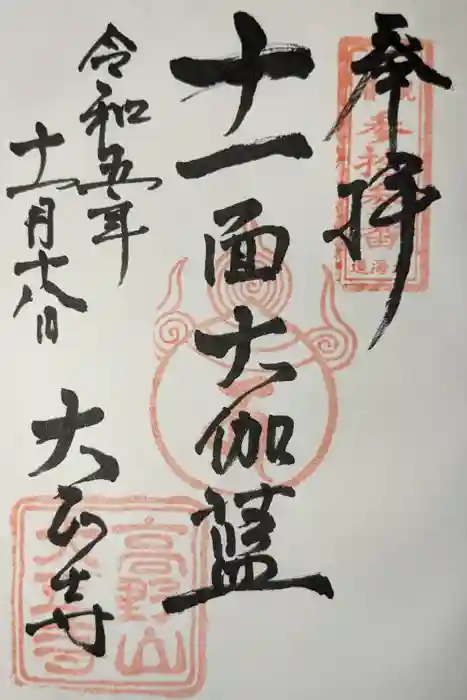 奉拝
十一面大伽藍
令和五年
十一月十八日
大正寺
高野山